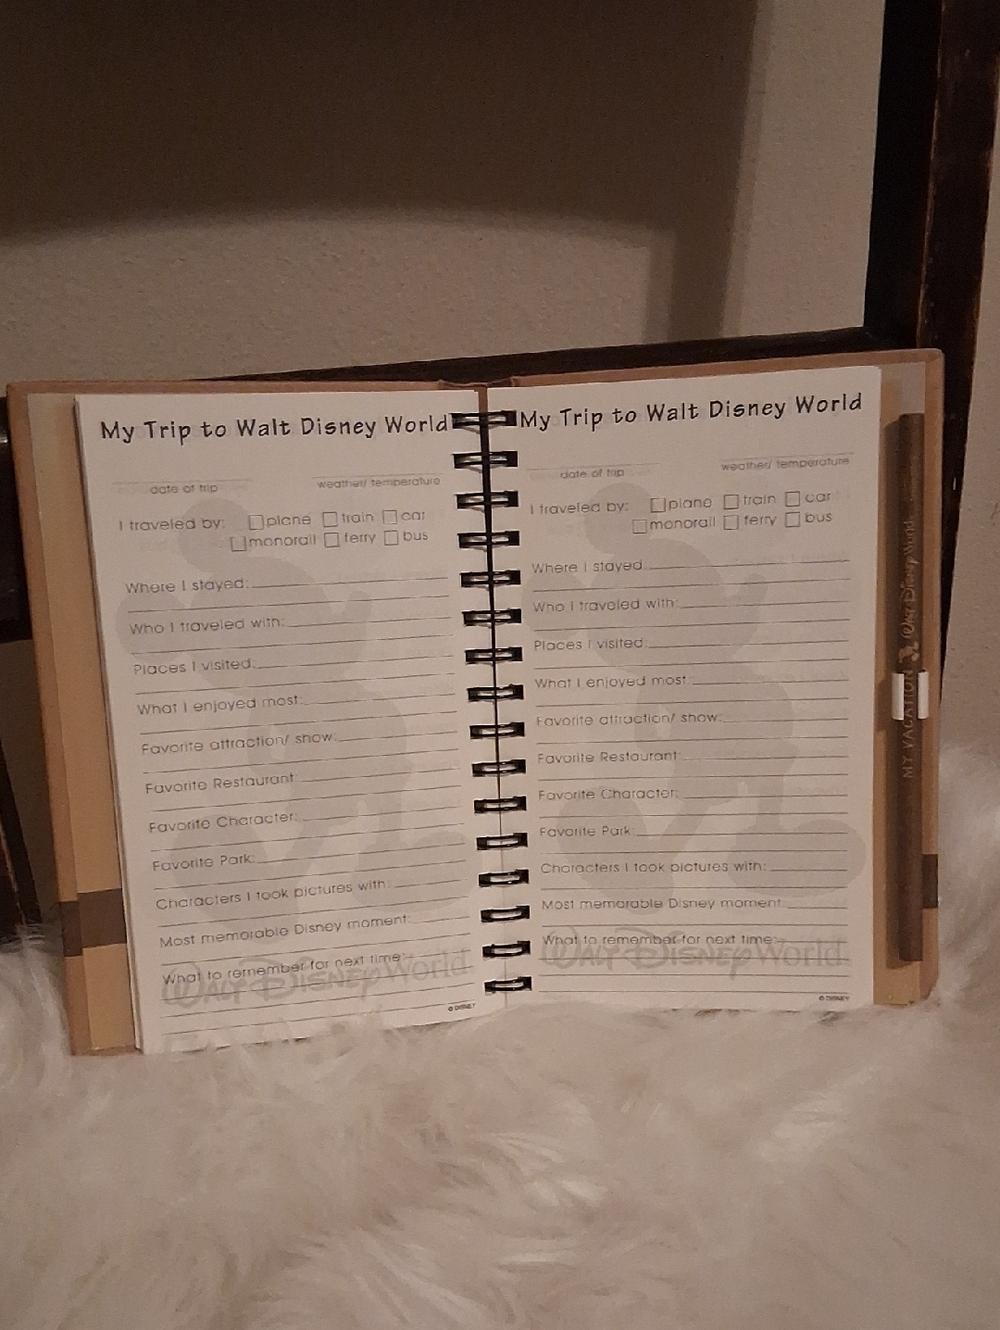 My Trip to Walt Disney World
date of trip weather/ temperature
I traveled by: plane train car
monorail ferry bus
Where I stayed:
Who I traveled with:
Places I visited:
What I enjoyed most:
Favorite attraction/ show:
Favorite Restaurant:
Favorite Character:
Favorite Park:
Characters I took pictures with:
Most memorable Disney moment:
What to remember for next time:
Walt Disney World
© DISNEY
My Trip to Walt Disney World
date of trip weather/ temperature
I traveled by: plane train car
monorail ferry bus
Where I stayed:
Who I traveled with:
Places I visited:
What I enjoyed most:
Favorite attraction/ show:
Favorite Restaurant:
Favorite Character:
Favorite Park:
Characters I took pictures with:
Most memorable Disney moment:
What to remember for next time:
Walt Disney World
© DISNEY
MY VACATION Walt Disney World